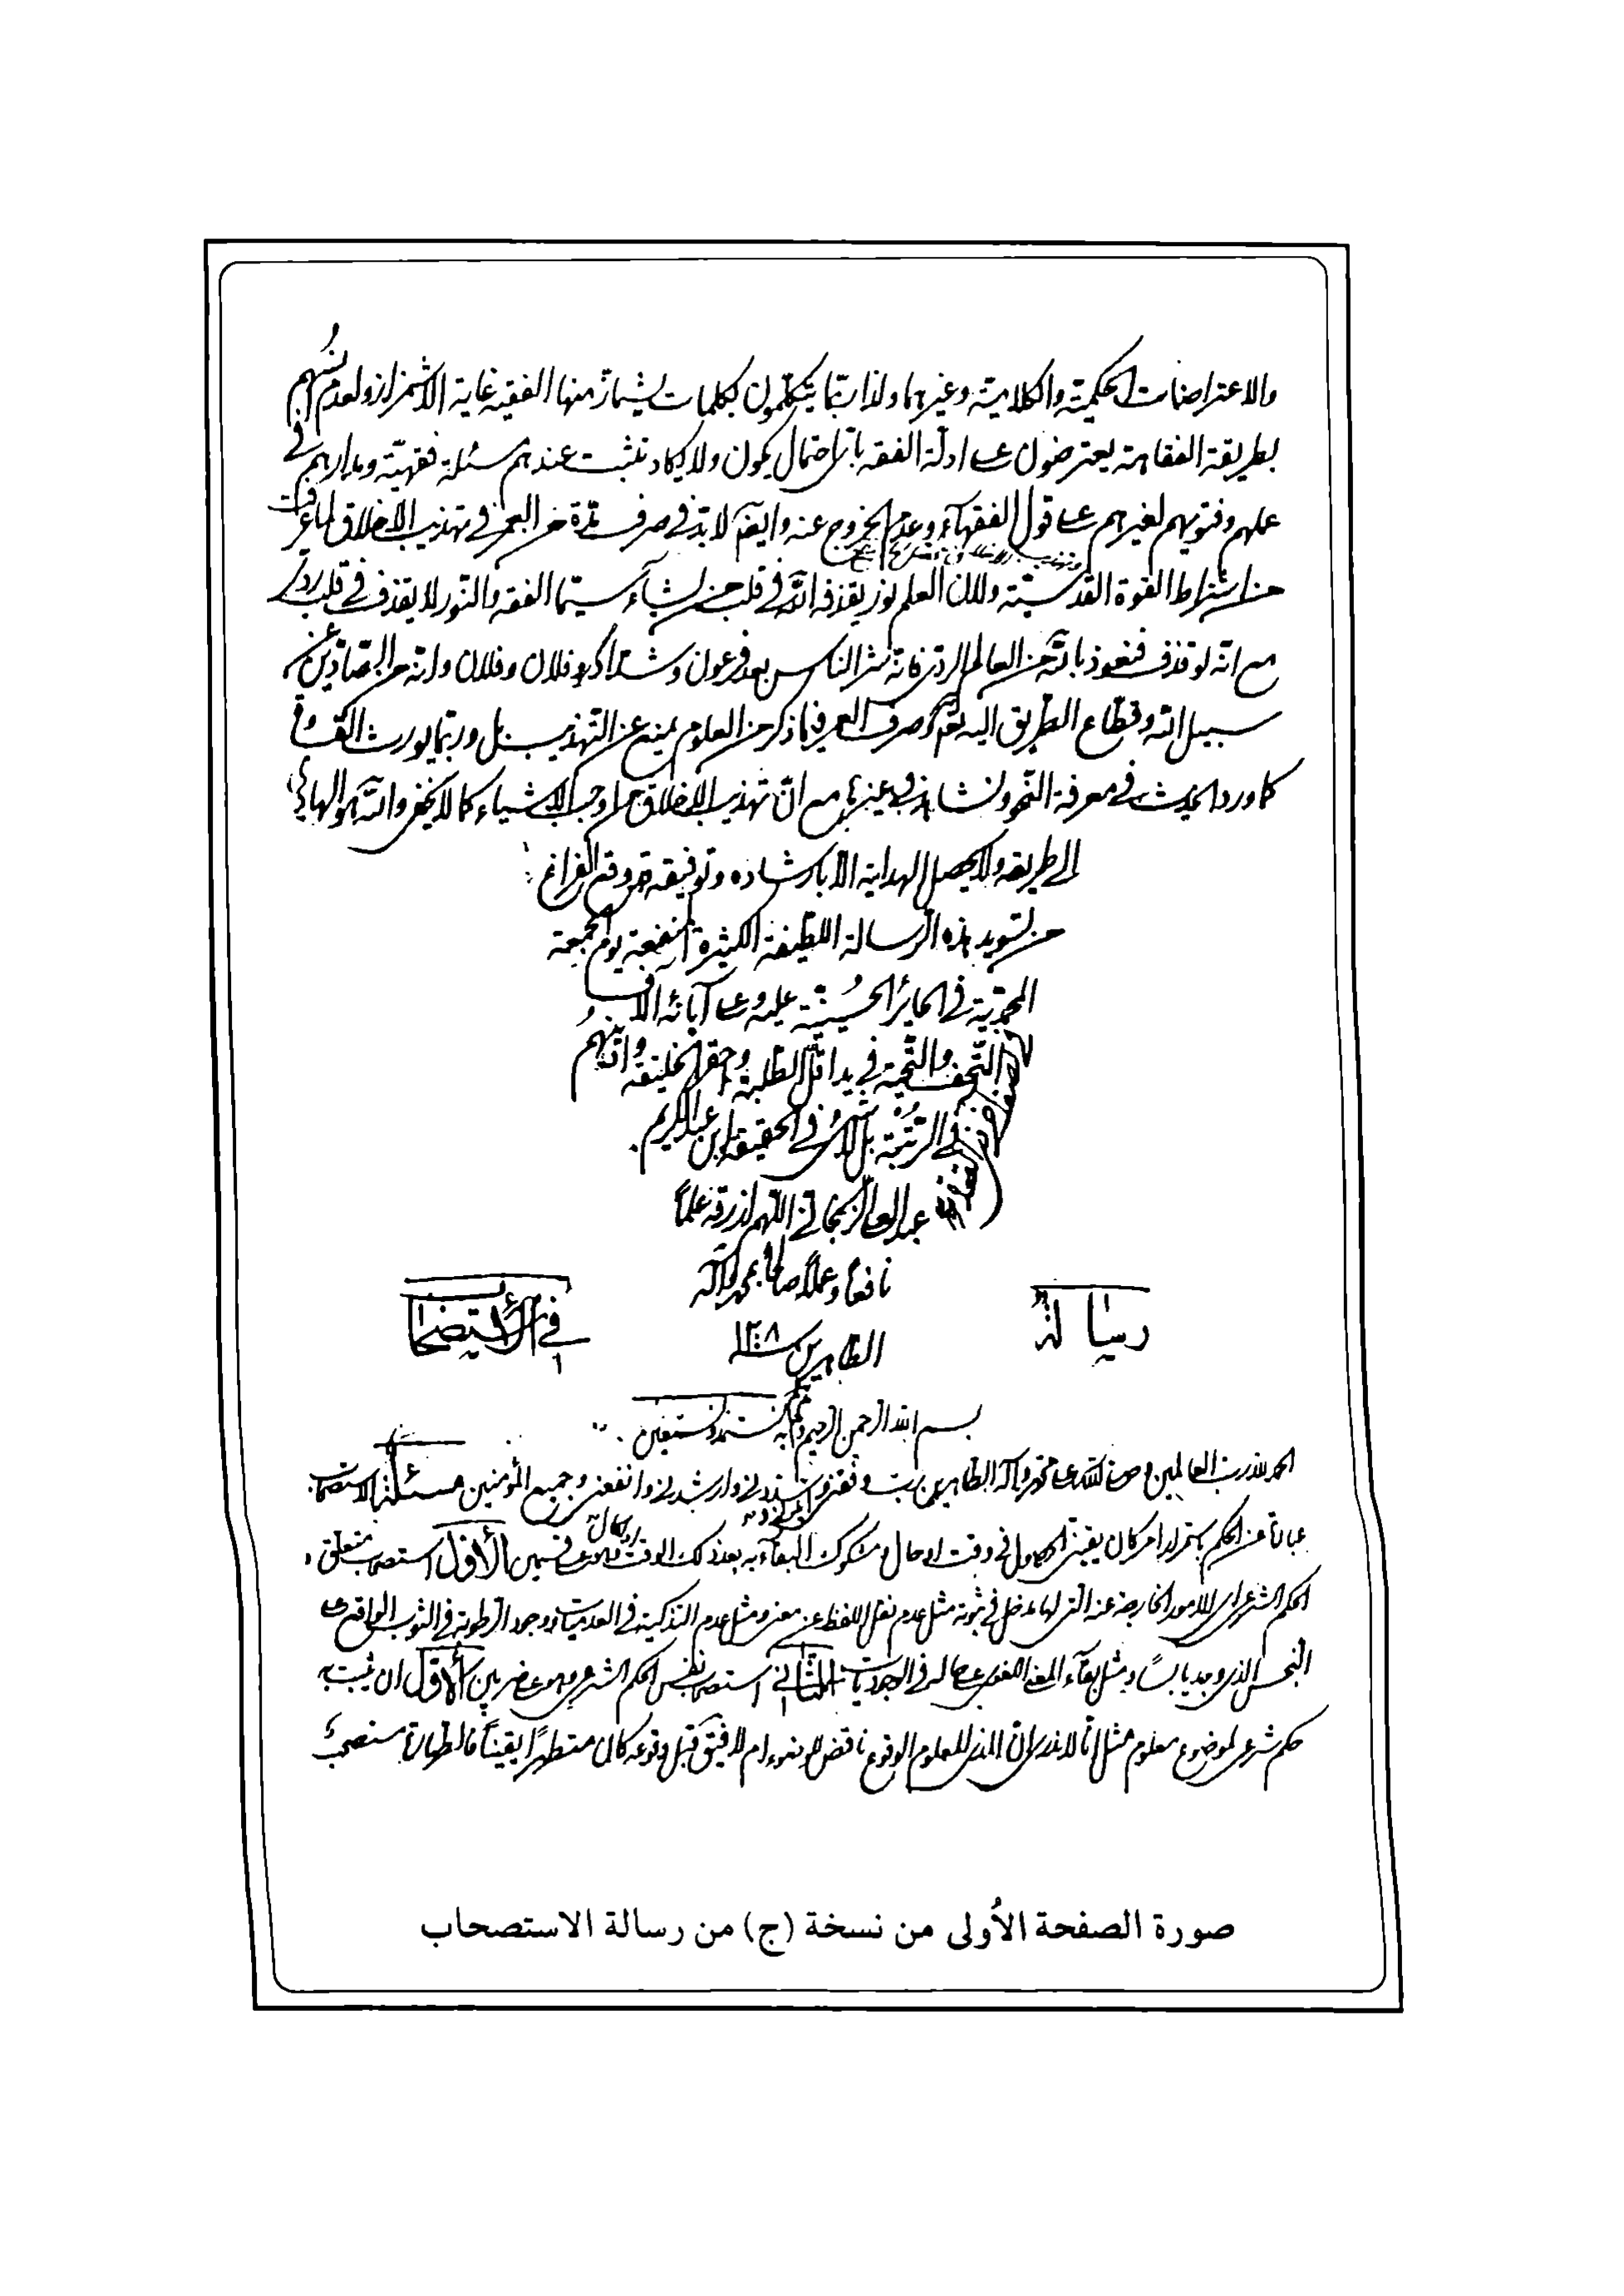 والاعتراضات الحكميّة والكلاميّة وغيرهما ولذا ربّما يتكلّمون بكلمات يشمأزّ منها الفقيه غاية الاشمزاز ولعدم اُنسهم
بطريقة الفقاهة يعترضون على ادلّة الفقه باىّ احتمال يكون ولا يكاد تثبت عندهم مسئلة فقهيّة ومدارهم في
علمهم وفتويهم لغيرهم على قول الفقهاء وعدم الخروج عنه وايضا لا بدّ في صرف مدّة من العمر في تهذيب الاخلاق لما عرفت
من اشتراط القوة القدسيّة ولان العلم نور يقذفه الله في قلب من يشاء سيّما الفقه والنّور لا يقذف في قلب ردىّ
مع انّه لو قذف فنعوذ بالله من العالم الردىّ فانّه شرّ الناس بعد فرعون وشدّاد وفلان وفلان وانّه من الصّادّين عن
سبيل الله وقطّاع الطريق اليه تعالى وصرف العمر فيما ذكر من العلوم يمنع عن التهذيب بل وربّما يورث القساوة
كما ورد الحديث في معرفة النّحو ونشاهد في غيرها مع انّ تهذيب الاخلاق من اوجب الاشياء كما لا يخفى والله هو الهادي
الى طريقه ولا يحصل الهداية الّا بارشاده وتوفيقه قد وقع الفراغ
من تسويد هذه الرسالة اللطيفة الكثيرة المنفعة يوم الجمعة
المحمّديّة في الحائر الحسُينيّة عليه وعلى آبائه الاف
التّحف والتّحيّة في يد اقلّ الطّلبة واحقر الخليقة
في الرّتبة بل لا شيء في الحقيقة ابن عبد الكريم
عبد العلى الزنجاني اللّهم ارزقه علماً
نافعاً وعملاً صالحاً بمحمّد وآله
الطاهرين سنة
رسالة في الاستصحاب
بسم الله الرّحمن الرّحيم وبه نستمدّ ونستعين
الحمد لله ربّ العالمين وصلى الله على محمّد وآله الطاهرين ربّ وفّقني وسدّدني وارشدني وانفعني وجميع المؤمنين مسئلة الاستصحاب
عبارة عن الحكم باستمرار امر كان يقيني الحصول في وقت او حال ومشكوك البقاء به بعد ذلك الوقت وهو على قسمين الأوّل استصحاب متعلّق
الحكم الشرعي اى الامور الخارجة عنه التي لها مدخل في ثبوته مثل عدم نقل اللفظ عن معنى ومثل عدم التذكية في العدميات ووجود الرّطوبة في الثوب الواقع على
النجس الذي وجد يابساً ومثل بقاء المعنى اللغوي على حاله في الوجوديات الثّاني استصحاب نفس الحكم الشرعي وهو على ضربين الأوّل ان يثبت به
حكم شرعي لموضوع معلوم مثل انّا لا ندري انّ المذي المعلوم الوقوع ناقض للوضوء ام لا فيقال قبل وقوعه كان متطهراً يقيناً فالطهارة مستصحبة
صورة الصفحة الأولى من نسخة (ج) من رسالة الاستصحاب